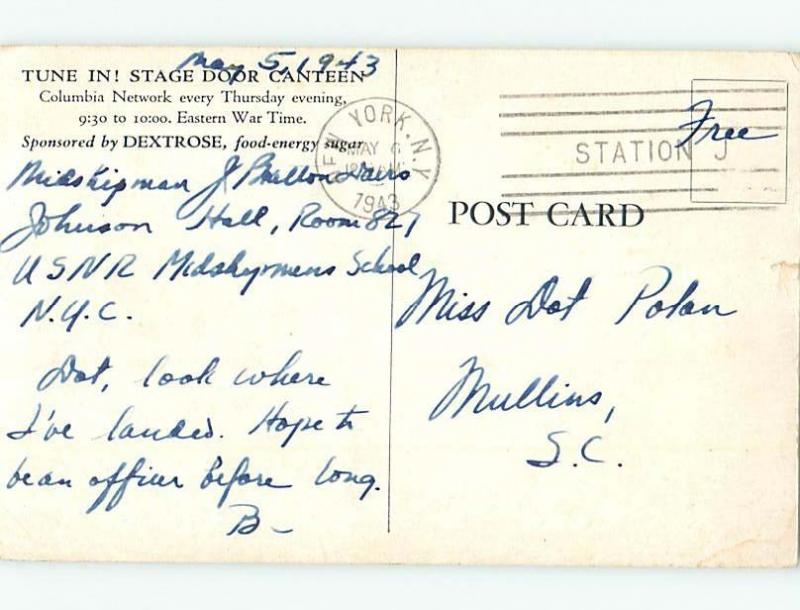 May 5, 1943
TUNE IN! STAGE DOOR CANTEEN
Columbia Network every Thursday evening,
9:30 to 10:00. Eastern War Time.
Sponsored by DEXTROSE, food-energy sugar
Midshipman J
Johnson Hall, Room 827
USNR Midshipmens School
N.Y.C.
Dot, look where
I've landed. Hope to
be an officer before long.
B-
NEW YORK, N.Y.
MAY
1943
STATION J
Free
POST CARD
Miss Dot Polan
Mullins,
S.C.